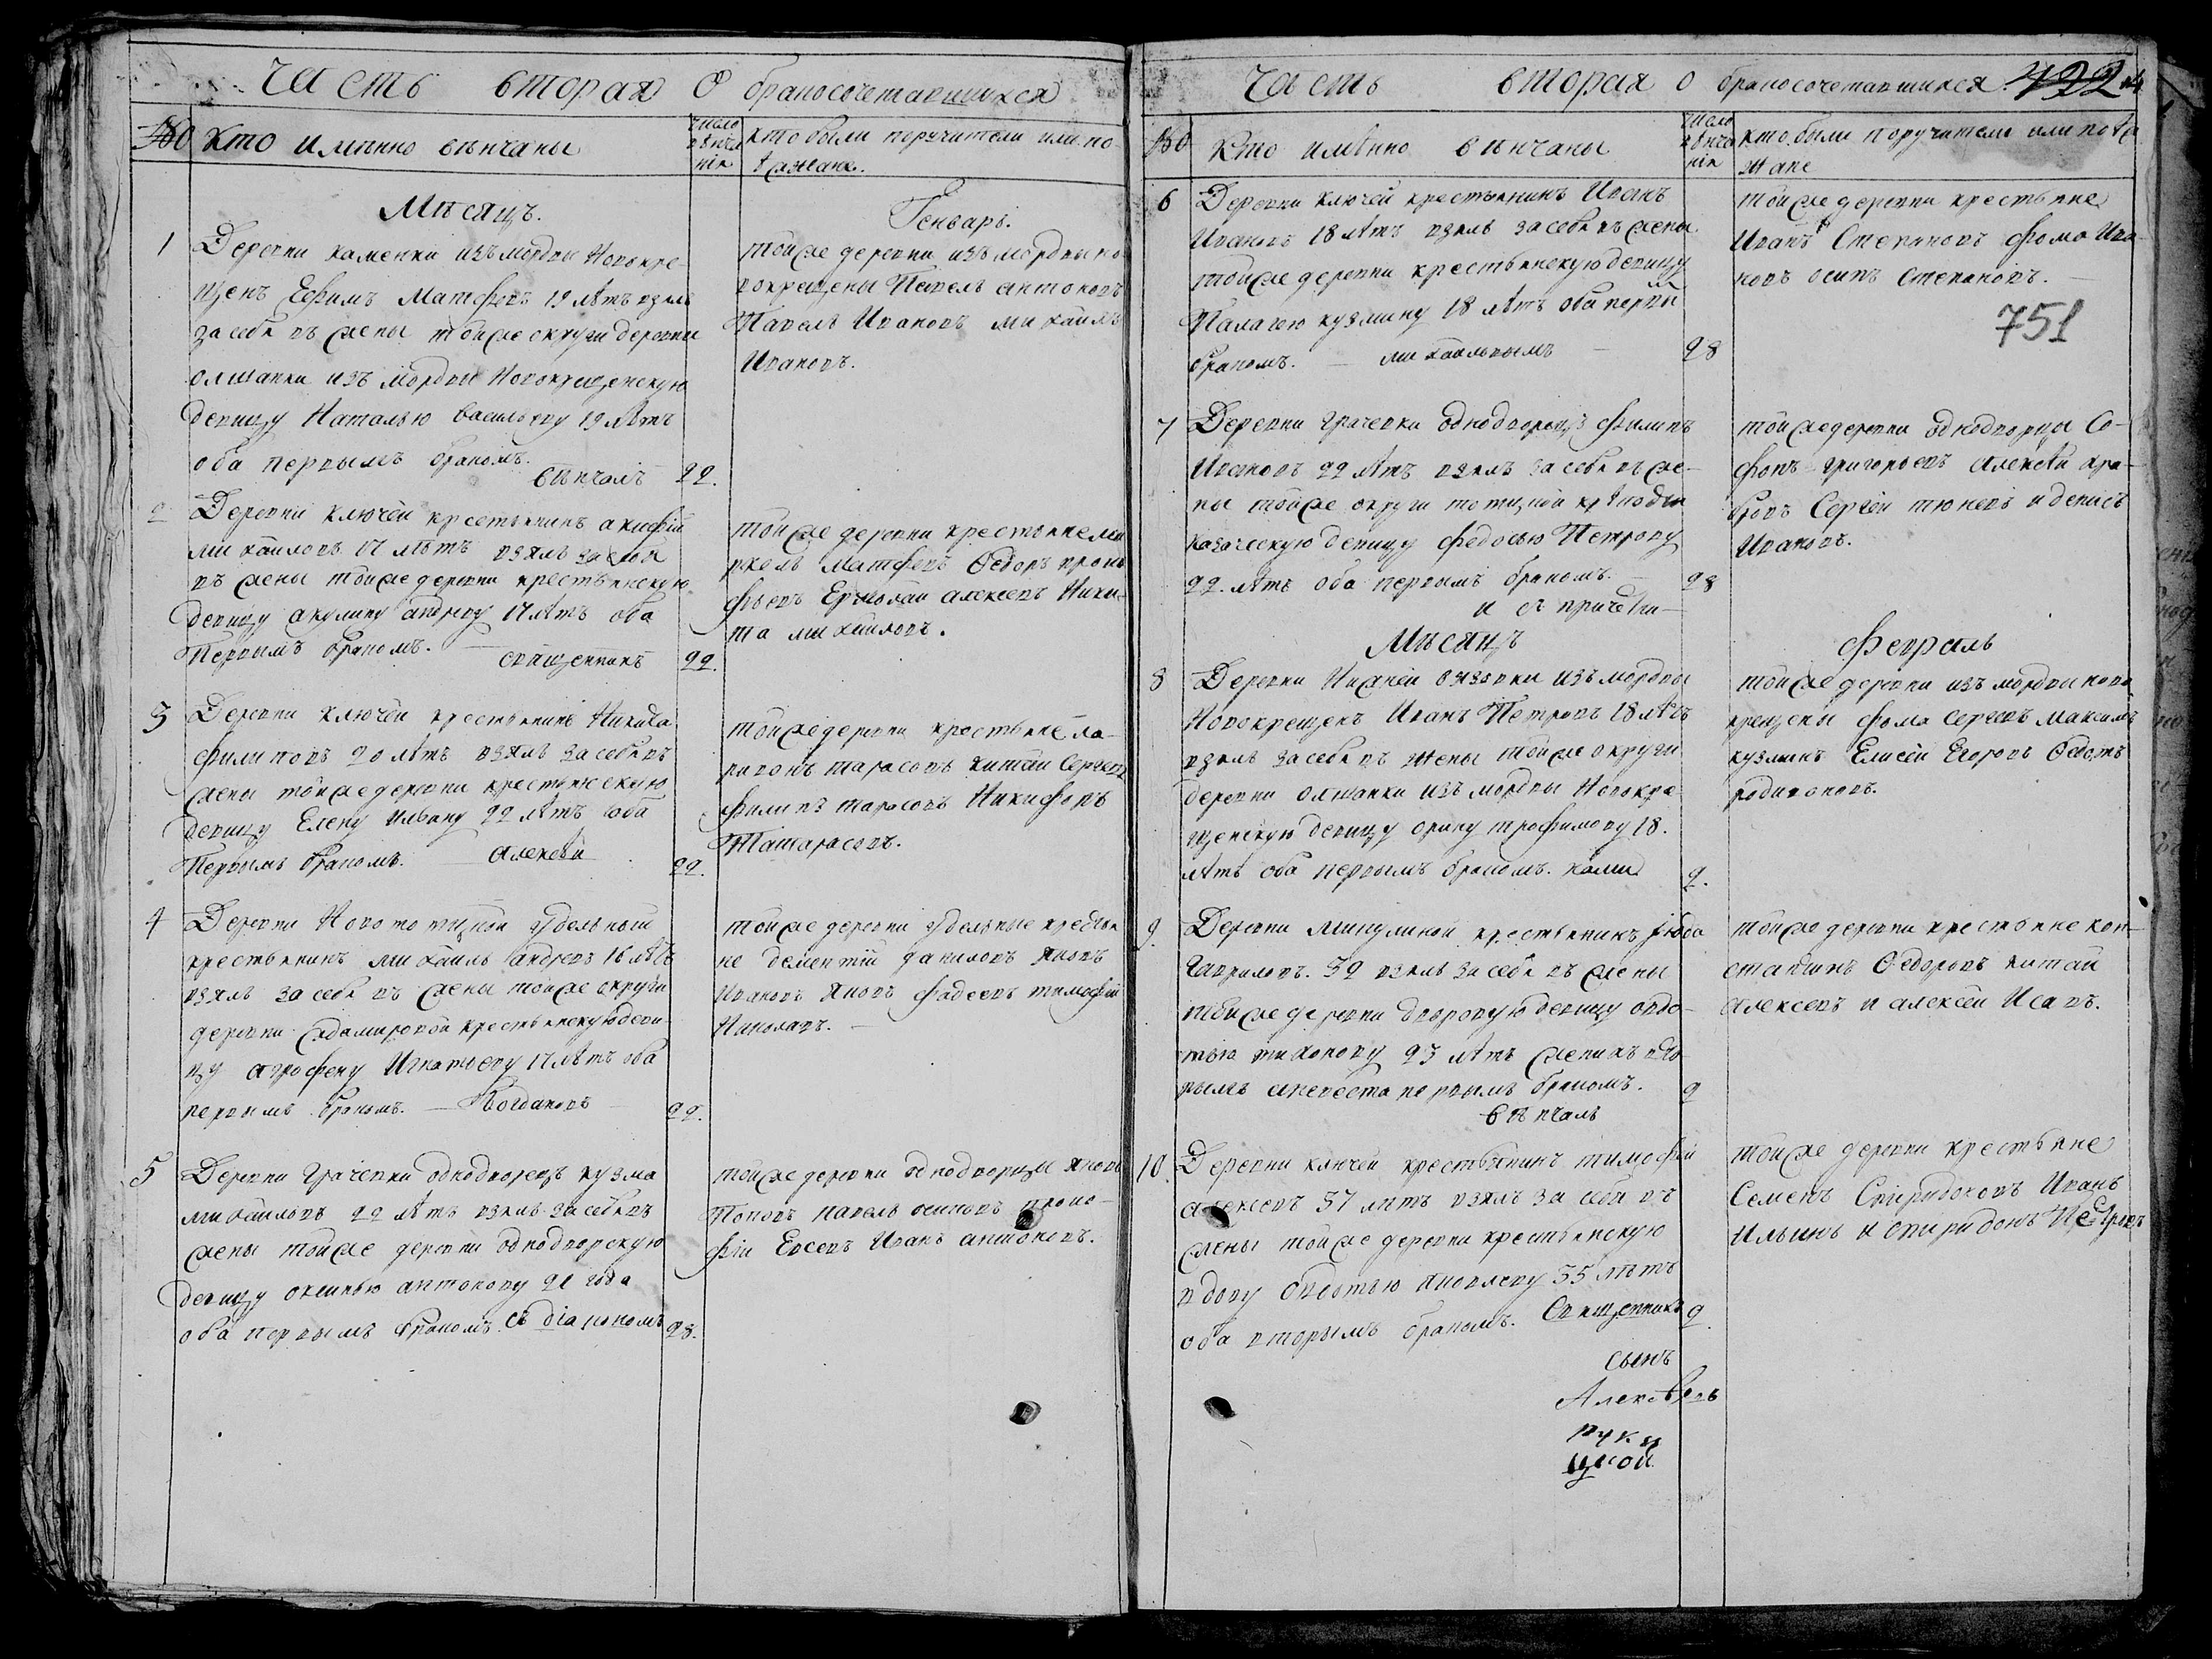 часть вторая о бракосочетавшихся
кто имянно венчаны
число венчания
кто были поручители или поезжане.
Месяцъ.
Генварь.
1
Деревни каменки изъ мордвы новокре-
щенъ Ефимъ Матфеевъ 19 летъ взялъ
за себя въ жены той же округи деревни
олшанки изъ мордвы новокрещенскую
девицу Наталью васильеву 19 летъ
оба первымъ бракомъ.
венчалъ
22.
той же деревни изъ мордвы но-
вокрещены Павелъ антоновъ
Павелъ Ивановъ михаилъ
Ивановъ.
2
Деревни ключей крестьянинъ акифiй
михаиловъ 17 летъ взялъ за себя
въ жены той же деревни крестьянскую
девицу акулину андрееву 17 летъ оба
Первымъ бракомъ.
священникъ
22.
той же деревни крестьяне
матфеевъ Федоръ
Ермолай алексеевъ Ники-
та михаиловъ.
3
Деревни ключей крестьянинъ Никита
филиповъ 20 летъ взялъ за себя въ
жены той же деревни крестьянскую
девицу Елену 22 летъ оба
Первымъ бракомъ.
алексей
22.
той же деревни крестьяне ла-
рионъ тарасовъ китай Сергеевъ
филипъ тарасовъ Никифоръ
тарасовъ.
4
Деревни удельный
крестьянинъ михаилъ андреевъ 16 летъ
взялъ за себя въ жены той же округи
деревни крестьянскую деви-
цу агрофену Игнатьеву 17 летъ оба
первымъ бракомъ. Богдановъ
22.
той же деревни удельные крестья-
не дементiй даниловъ яковъ
Ивановъ яковъ фадеевъ тимофей
5
Деревни грачевки однодворецъ кузма
михаиловъ 22 летъ взялъ за себя въ
жены той же деревни однодворскую
девицу оксинью антонову 21 года
оба первымъ бракомъ. съ дiакономъ
28.
той же деревни однодворцы яковъ
Поповъ павелъ осиповъ проко-
фiй Евсеевъ Иванъ антоновъ.
часть вторая о бракосочетавшихся.
422
Кто имянно венчаны
число венчания
кто были поручители или поезжане
6
Деревни ключей крестьянинъ Иванъ
Ивановъ 18 летъ взялъ за себя въ жены
той же деревни крестьянскую девицу
Палагею кузмину 18 летъ оба первымъ
бракомъ. — михаиловымъ —
28
той же деревни крестьяне
Иванъ Степановъ фома Ива-
новъ осипъ степановъ.
751
7
Деревни грачевки однодворецъ филипъ
Ивановъ 22 летъ взялъ за себя въ же-
ны той же округи крепости
казаческую девицу федосью Петрову
22. летъ оба первымъ бракомъ. —
28
и съ причетни-
той же деревни однодворцы Со-
фонъ григорьевъ алексей
Сергей и денисъ
Ивановъ.
Месяцъ
февраль
8
Деревни вязовки изъ мордвы
Новокрещенъ Иванъ Петровъ 18 летъ
взялъ за себя въ жены той же округи
деревни олшанки изъ мордвы Новокре-
щенскую девицу орину трофимову 18.
летъ оба первымъ бракомъ. ками
9.
той же деревни изъ мордвы ново-
крещены фома сергеевъ максимъ
кузминъ Елисей Егоровъ Федотъ
родионовъ.
9
Деревни крестьянинъ
Гавриловъ. 39 взялъ за себя въ жены
той же деревни дворовую девицу овдо-
тью тихонову 23 летъ женихъ вто-
рымъ а невеста первымъ бракомъ.
9
венчалъ
той же деревни крестьяне кон-
стантинъ Федоровъ китай
алексеевъ и алексей Исаевъ.
10.
Деревни ключей крестьянинъ тимофей
алексеевъ 37 летъ взялъ за себя въ
жены той же деревни крестьянскую
вдову яковлеву 35 летъ
оба вторымъ бракомъ. Священникъ
9
той же деревни крестьяне
Семенъ Спиридоновъ Иванъ
Ильинъ и спиридонъ Петровъ
сынъ
Алексеевъ
руку